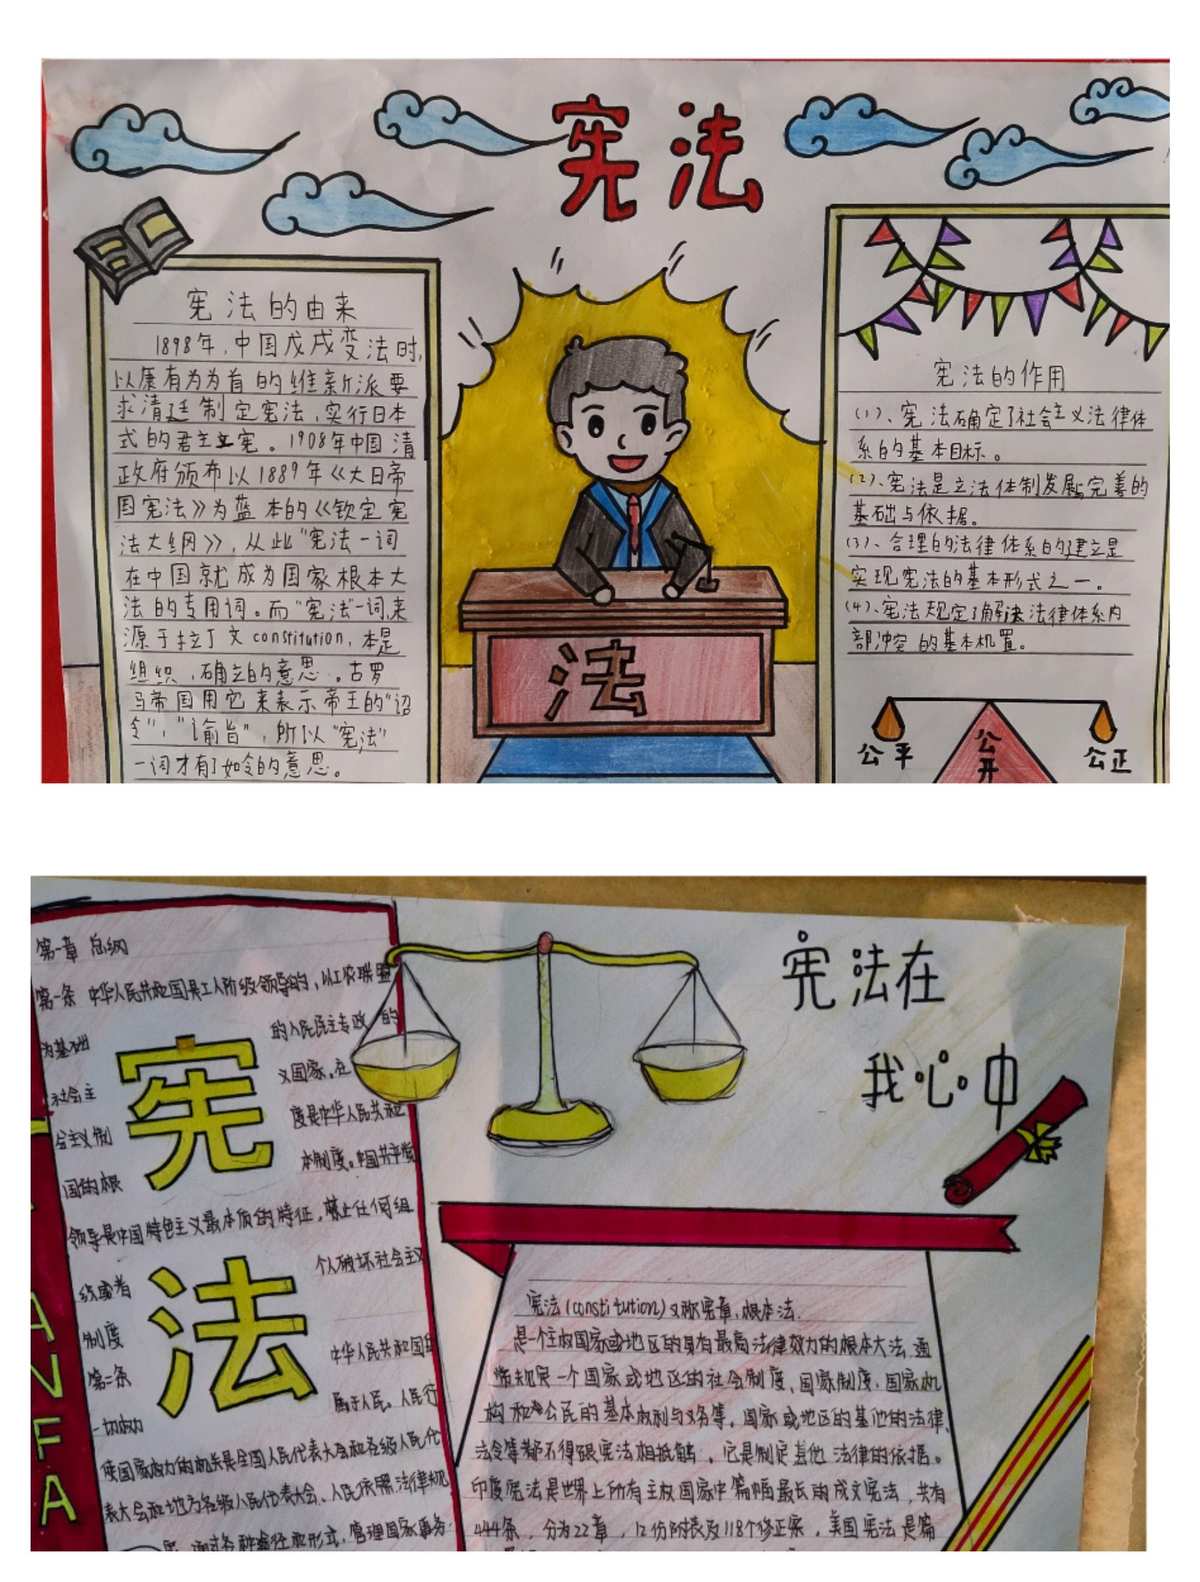 宪法
宪法的由来
1898年,中国戊戌变法时,
以康有为为首的维新派要
求清廷制定宪法,实行日本
式的君主立宪。1908年中国清
政府颁布以1889年《大日帝
国宪法》为蓝本的《钦定宪
法大纲》,从此"宪法一词
在中国就成为国家根本大
法的专用词。而"宪法"一词来
源于拉丁文constitution,本是
组织、确立的意思。古罗
马帝国用它来表示帝王的"诏
令"、"谕旨",所以"宪法"
一词才有了如今的意思。
法
宪法的作用
(1)、宪法确定了社会主义法律体
系的基本目标。
(2)、宪法是立法体制发展完善的
基础与依据。
(3)、合理的法律体系的建立是
实现宪法的基本形式之一。
(4)、宪法规定了解决法律体系内
部冲突的基本机置。
公平
公开
公正
第一章 总纲
第一条 中华人民共和国是工人阶级领导的,以工农联盟
为基础 的人民民主专政 的
社会主 义国家。社
会主义制 度是中华人民共和
国的根 本制度。中国共产党
领导是中国特色主义最本质的特征,禁止任何组
织或者 个人破坏社会主义
制度
第二条 中华人民共和国
一切权力 属于人民。人民行
使国家权力的机关是全国人民代表大会和各级人民代
表大会和地方各级人民代表大会、人民依照法律规
形式,管理国家事务
宪法
ANFA
宪法在
我心中
宪法(constitution)又称宪章,根本法.
是一个主权国家或地区的具有最高法律效力的根本大法,通
常规定一个国家或地区的社会制度、国家制度、国家机
构和公民的基本权利与义务等。国家或地区的其他的法律、
法令等都不得跟宪法相抵触。它是制定其他法律的依据。
印度宪法是世界上所有主权国家中篇幅最长的成文宪法,共有
444条,分为22章,12份附表及118个修正案,美国宪法是篇